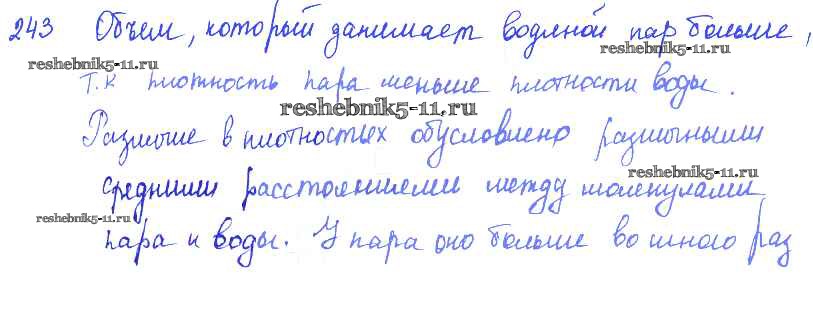 243 Объем, который занимает водяной пар больше,
reshebnik5-11.ru
reshebnik5-11.ru
т.к плотность пара меньше плотности воды.
reshebnik5-11.ru
Различие в плотностях обусловлено различными
reshebnik5-11.ru
средними расстояниями между молекулами
reshebnik5-11.ru
пара и воды. У пара оно больше во много раз